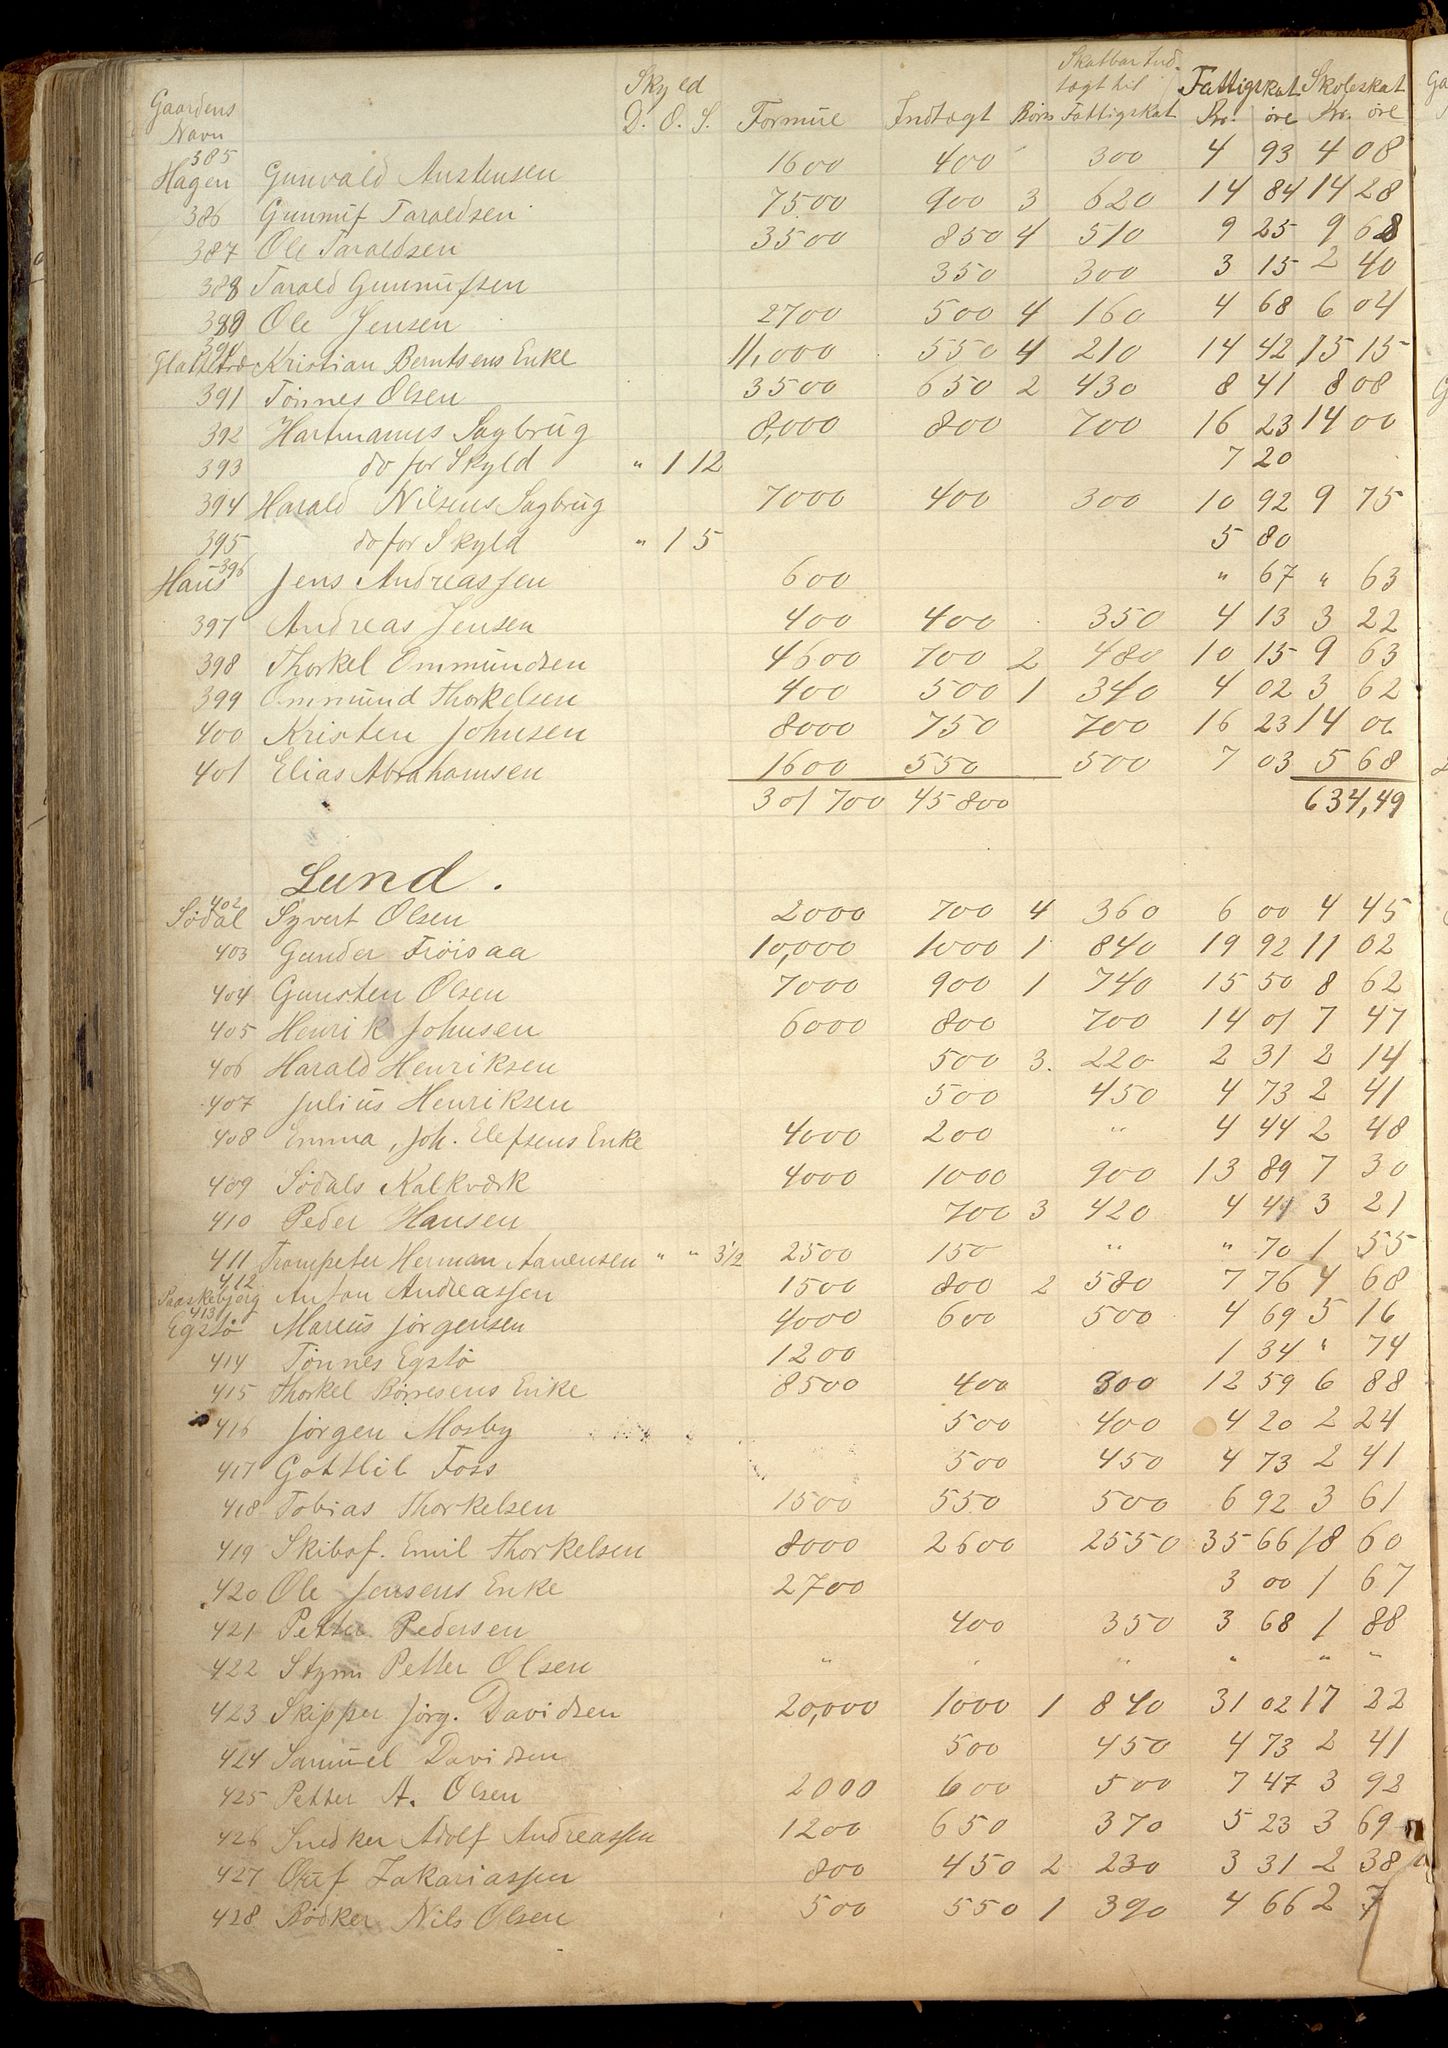 Gaardens Navn | Skyld D. O. S. | Formue | Indtægt | Børn | Skatbar Indtægt til Fattigskat | Fattigskat Kr. øre | Skoleskat Kr. øre
Hagen 385 Gunvald Austensen 1600 400 300 4 93 4 08
386 Gunnuf Taraldsen 7500 900 3 620 14 84 14 28
387 Ole Taraldsen 3500 850 4 510 9 25 9 68
388 Tarald Gunnufsen 350 300 3 15 2 40
389 Ole Jensen 2700 500 4 160 4 68 6 04
Kristian Berntsens Enke 11,000 550 4 210 14 42 15 15
391 Tönnes Olsen 3500 650 2 430 8 41 8 08
392 Hartmanns Sagbrug 8,000 800 700 16 23 14 00
393 do for Skyld " 1 12 7 20
394 Harald Nilsens Sagbrug 7000 400 300 10 92 9 75
395 do for Skyld " 1 5 5 80
Haus 396 Jens Andreassen 600 " 67 " 63
397 Andreas Jensen 400 400 350 4 13 3 22
398 Thorkel Ommundsen 4600 700 2 480 10 15 9 63
399 Ommund Thorkelsen 400 500 1 340 4 02 3 62
400 Kristen Johnsen 8000 750 700 16 23 14 00
401 Elias Abrahamsen 1600 550 500 7 03 5 68
301 700 45 800 634,49
Lund.
Sødal 402 Syvert Olsen 2000 700 4 360 6 00 4 45
403 Gunder Fröisaa 10,000 1000 1 840 19 92 11 02
404 Gunsten Olsen 7000 900 1 740 15 50 8 62
405 Henrik Johnsen 6000 800 700 14 01 7 47
406 Harald Henriksen 500 3. 220 2 31 2 14
407 Julius Henriksen 500 450 4 73 2 41
408 Emma, Joh. Elefsens Enke 4000 200 " 4 44 2 48
409 Södals Kalkværk 4000 1000 900 13 89 7 30
410 Peder Hansen 700 3 420 4 41 3 21
411 Trompeter Herman Aanensen " " 3½ 2500 150 " " 70 1 55
412 Anton Andreassen 1500 800 2 580 7 76 4 68
Egstö 413 Marius Jörgensen 4000 600 500 4 69 5 16
414 Tönnes Egstö 1200 1 34 " 74
415 Thorkel Börresens Enke 8500 400 300 12 59 6 88
416 Jörgen Mosby 500 400 4 20 2 24
417 Gottlib Foss 500 450 4 73 2 41
418 Tobias Thorkelsen 1500 550 500 6 92 3 61
419 Skibsf. Emil Thorkelsen 8000 2600 2550 35 66 18 60
420 Ole Jensens Enke 2700 3 00 1 67
421 Petter Pedersen 400 350 3 68 1 88
422 Styrm Petter Olsen " " " " " "
423 Skipper Jörg. Davidsen 20,000 1000 1 840 31 02 17 22
424 Samuel Davidsen 500 450 4 73 2 41
425 Petter A. Olsen 2000 600 500 7 47 3 92
426 Snedker Adolf Andreassen 1200 650 370 5 23 3 69
427 Oluf Zakariassen 800 450 2 230 3 31 2 38
428 Bödker Nils Olsen 500 550 1 390 4 66 2 7